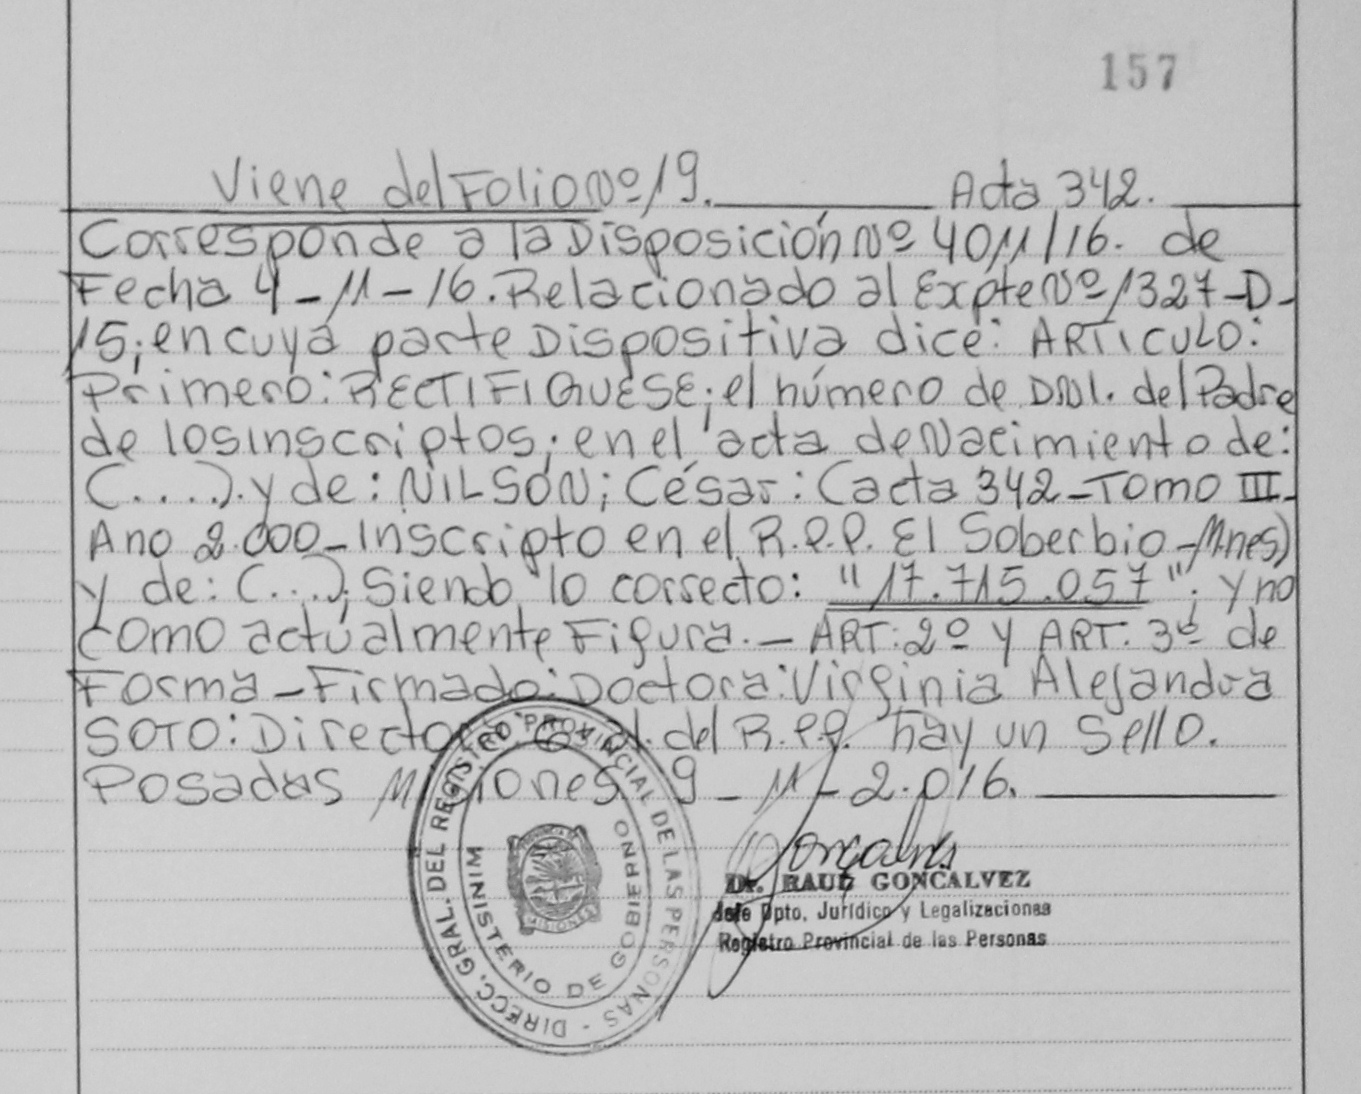 157
Viene del Folio Nº 19. Acta 342.
Corresponde a la Disposición Nº 4011/16. de
Fecha 4-11-16. Relacionado al Expte Nº 1327-D-
15; en cuya parte Dispositiva dice: ARTICULO:
Primero: RECTIFIQUESE; el número de D.N.I. del Padre
de los inscriptos; en el acta de Nacimiento de:
(....). y de: NILSON; César: (acta 342-Tomo III-
Ano 2.000-Inscripto en el R.P.P. El Soberbio-Mnes)
y de: (...); Siendo lo correcto: "17.715.057"; y no
como actualmente Figura.- ART: 2º y ART. 3º de
Forma-Firmado: Doctora: Virginia Alejandra
SOTO: Directora Gral. del R.P.P. hay un Sello.
Posadas Misiones 9-11-2.016.
DIRECC. GRAL. DEL REGISTRO PROVINCIAL DE LAS PERSONAS -
MINISTERIO DE GOBIERNO
PROVINCIA DE
MISIONES
Goncalves
Dr. RAUL GONCALVEZ
Jefe Dpto. Jurídico y Legalizaciones
Registro Provincial de las Personas